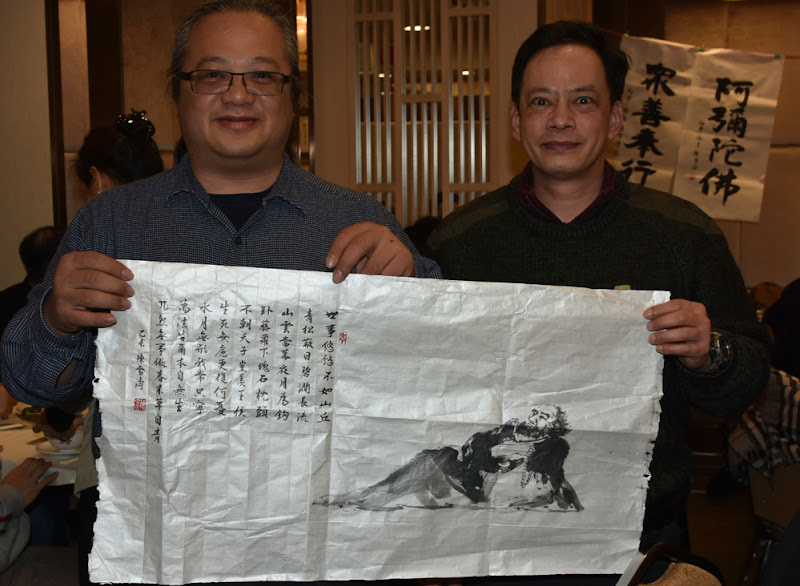 世事悠悠不如山丘
青松蔽日碧澗長流
山雲當幕夜月為鈎
卧藤蘿下塊石枕頭
不朝天子豈羨王侯
生死無慮更復何憂
水月無形我常只寧
萬法皆爾本自無生
兀然無事做春來草自青
阿彌陀佛
眾善奉行